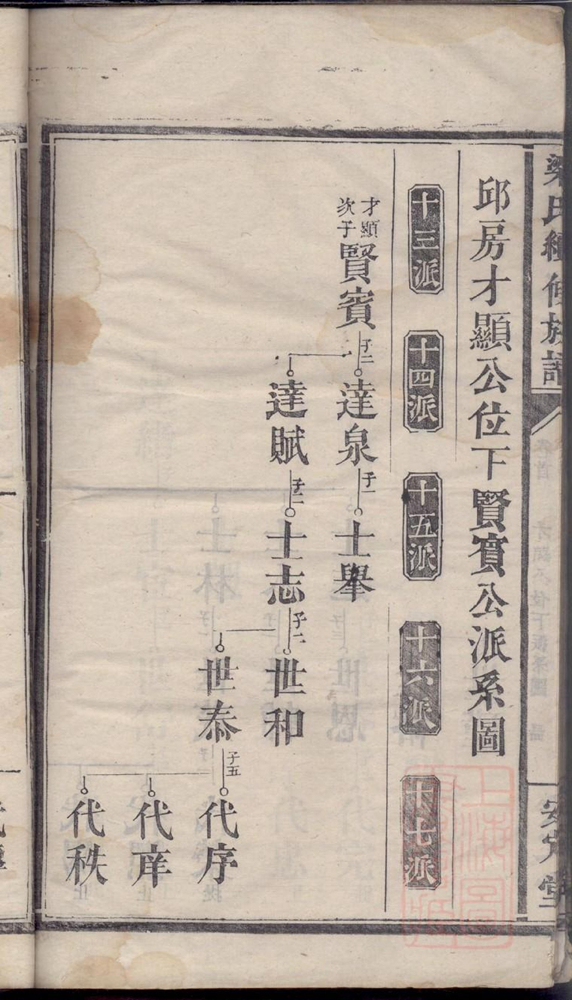 梁氏續修族譜
安定堂
邱房才顯公位下賢賓公派系圖
十三派
十四派
十五派
十六派
十七派
才顯
次子
賢賓
子二
達泉
子一
士舉
達賦
子二
士志
子二
世和
世泰
子五
代序
代庠
代秩